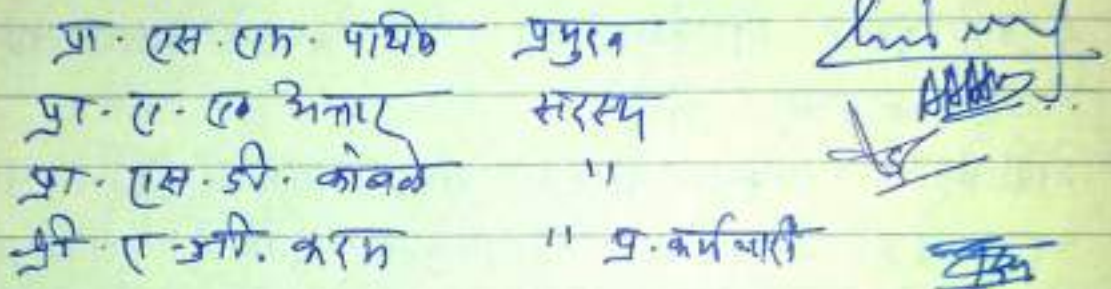 प्रा. एस. एम. पाथिक प्रमुख
प्रा. ए. ए. अत्तार सदस्य
प्रा. एस. डी. कांबळे "
श्री. ए. जी. कदम " प्र. कर्मचारी